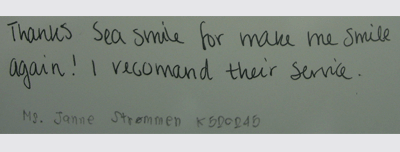 Thanks Sea smile for make me smile
again! I recomand their service.
Ms. Janne Strommen K520245